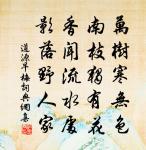 萬樹寒無色
南枝獨有花
香聞流水處
影落野人家
道源早梅詞典網